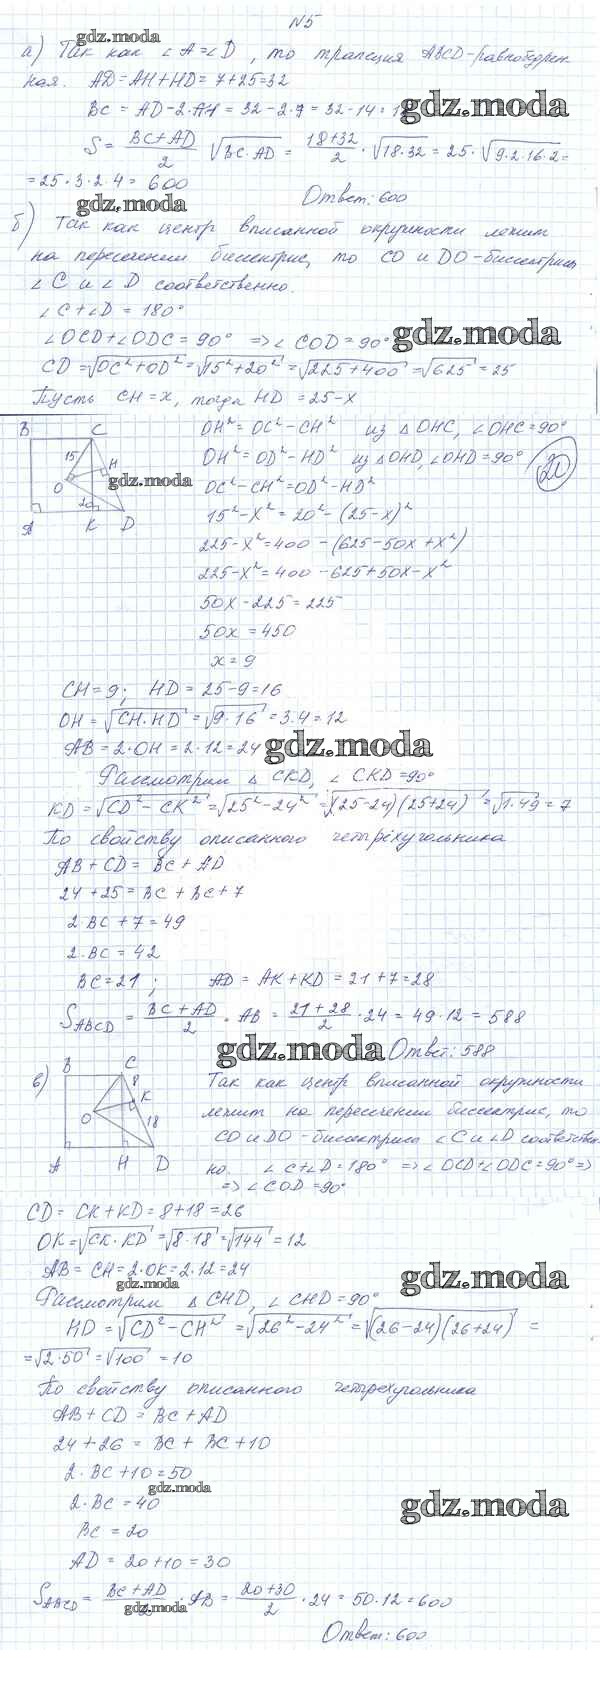 N5
gdz.moda
а) Так как ∠A=∠D, то трапеция ABCD-равнобедрен-
ная. AD=AH+HD=7+25=32
BC = AD-2·AH = 32-2·7=32-14=
gdz.moda
S = (BC+AD)/2 √(BC·AD) = (18+32)/2 · √(18·32) = 25·√(9·2·16·2) =
=25·3·2·4=600
Ответ: 600
gdz.moda
б) Так как центр вписанной окружности лежит
на пересечении биссектрис, то CO и DO-биссектрисы
∠C и ∠D соответственно.
∠C+∠D = 180°
∠OCD+∠ODC=90° ⇒∠COD=90°
gdz.moda
CD=√(OC²+OD²)=√(15²+20²)=√(225+400)=√625=25
Пусть CH=x, тогда HD=25-x
B C 15 H O 20 A K D
gdz.moda
OH²=OC²-CH² из △OHC, ∠OHC=90°
OH²=OD²-HD² из △OHD, ∠OHD=90°
20
OC²-CH²=OD²-HD²
15²-x²=20²-(25-x)²
225-x²=400-(625-50x+x²)
225-x²=400-625+50x-x²
50x-225=225
50x=450
x=9
CH=9; HD=25-9=16
OH=√(CH·HD)=√(9·16)=3·4=12
AB=2·OH=2·12=24
gdz.moda
Рассмотрим △CKD, ∠CKD=90°
KD=√(CD²-CK²)=√(25²-24²)=√((25-24)(25+24))=√(1·49)=7
По свойству описанного четырёхугольника
AB+CD=BC+AD
24+25=BC+BC+7
2·BC+7=49
2·BC=42
BC=21; AD=AK+KD=21+7=28
S ABCD = (BC+AD)/2 · AB = (21+28)/2 · 24 = 49·12=588
gdz.moda
Ответ: 588
в) B C 8 K O 18 A H D
Так как центр вписанной окружности
лежит на пересечении биссектрис, то
CO и DO-биссектрисы ∠C и ∠D соответствен-
но. ∠C+∠D=180° ⇒∠OCD+∠ODC=90°⇒
⇒∠COD=90°
CD=CK+KD=8+18=26
OK=√(CK·KD)=√(8·18)=√144=12
AB=CH=2·OK=2·12=24
gdz.moda
gdz.moda
Рассмотрим △CHD, ∠CHD=90°
HD=√(CD²-CH²)=√(26²-24²)=√((26-24)(26+24))=
=√(2·50)=√100=10
По свойству описанного четырехугольника
AB+CD=BC+AD
24+26=BC+BC+10
2·BC+10=50
gdz.moda
2·BC=40
gdz.moda
BC=20
AD=20+10=30
S ABCD = (BC+AD)/2 · AB = (20+30)/2 · 24 = 50·12=600
gdz.moda
Ответ: 600